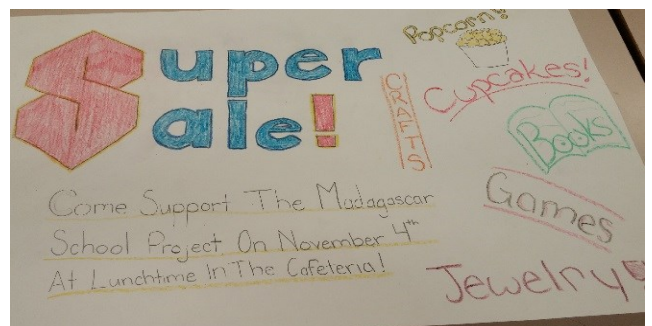 Super
Sale!
Popcorn!
CRAFTS
Cupcakes!
Books
Games
Jewelry!
Come Support The Madagascar
School Project On November 4th
At Lunchtime In The Cafeteria!